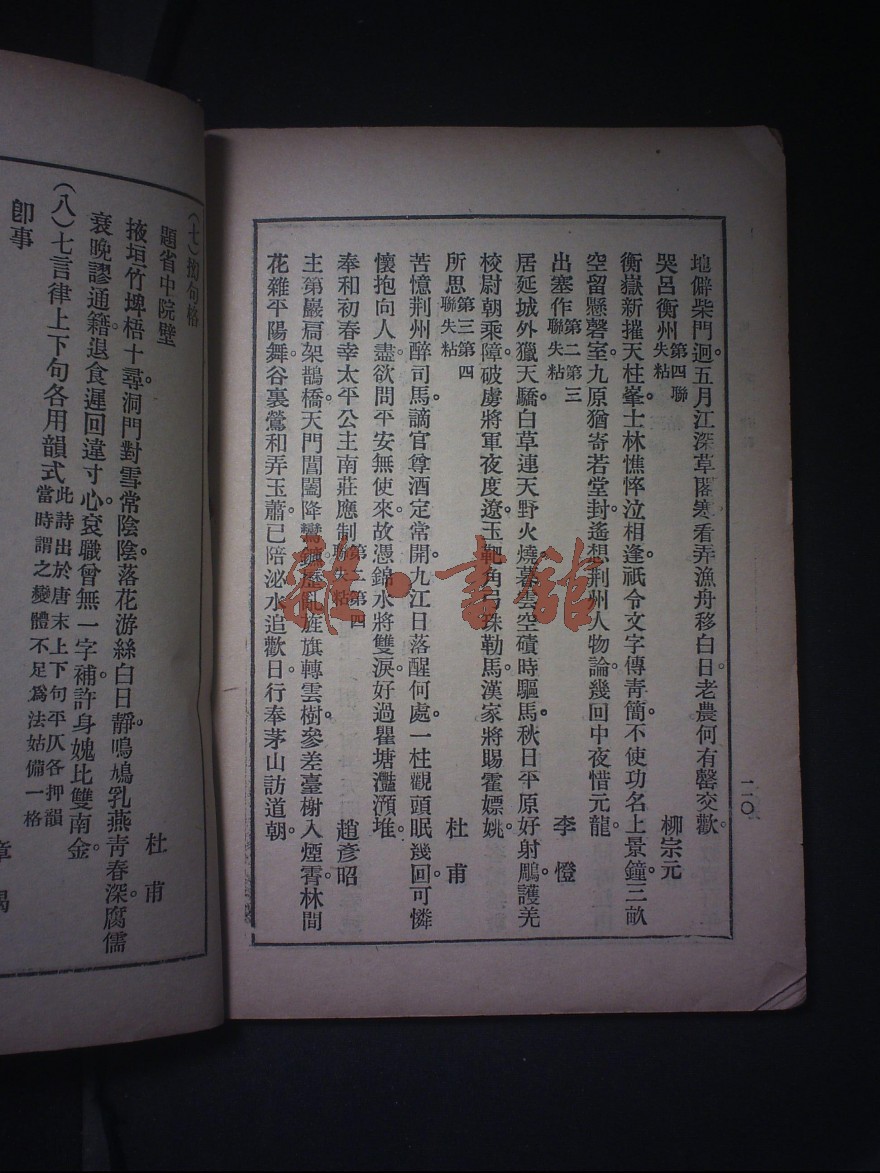 二〇
地僻柴門迥。五月江深草閣寒。看弄漁舟移白日。老農何有罄交歡。
哭呂衡州第四聯失粘 柳宗元
衡嶽新摧天柱峯。士林憔悴泣相逢。祇令文字傳青簡。不使功名上景鐘。三畝
空留懸磬室。九原猶寄若堂封。遙想荆州人物論。幾回中夜惜元龍。
出塞作第二第三聯失粘 李憕
居延城外獵天驕。白草連天野火燒。暮雲空磧時驅馬。秋日平原好射鵰。護羌
校尉朝乘障。破虜將軍夜度遼。玉靶角弓珠勒馬。漢家將賜霍嫖姚。
所思第三第四聯失粘 杜甫
苦憶荆州醉司馬。謫官尊酒定常開。九江日落醒何處。一柱觀頭眠幾回。可憐
懷抱向人盡。欲問平安無使來。故憑錦水將雙淚。好過瞿塘灩澦堆。
奉和初春幸太平公主南莊應制第二第四聯失粘 趙彥昭
主第巖扃架鵲橋。天門閶闔降鸞鑣。歷亂旌旗轉雲樹。參差臺榭入煙霄。林間
花雜平陽舞。谷裏鶯和弄玉蕭。已陪泌水追歡日。行奉茅山訪道朝。
(七)拗句格
題省中院壁 杜甫
掖垣竹埤梧十尋。洞門對雪常陰陰。落花游絲白日靜。鳴鳩乳燕青春深。腐儒
衰晚謬通籍。退食遲回違寸心。袞職曾無一字補。許身媿比雙南金。
(八)七言律上下句各用韻式此詩出於唐末上下句平仄各押韻當時謂之變體不足爲法姑備一格
卽事 章碣
雜·書館